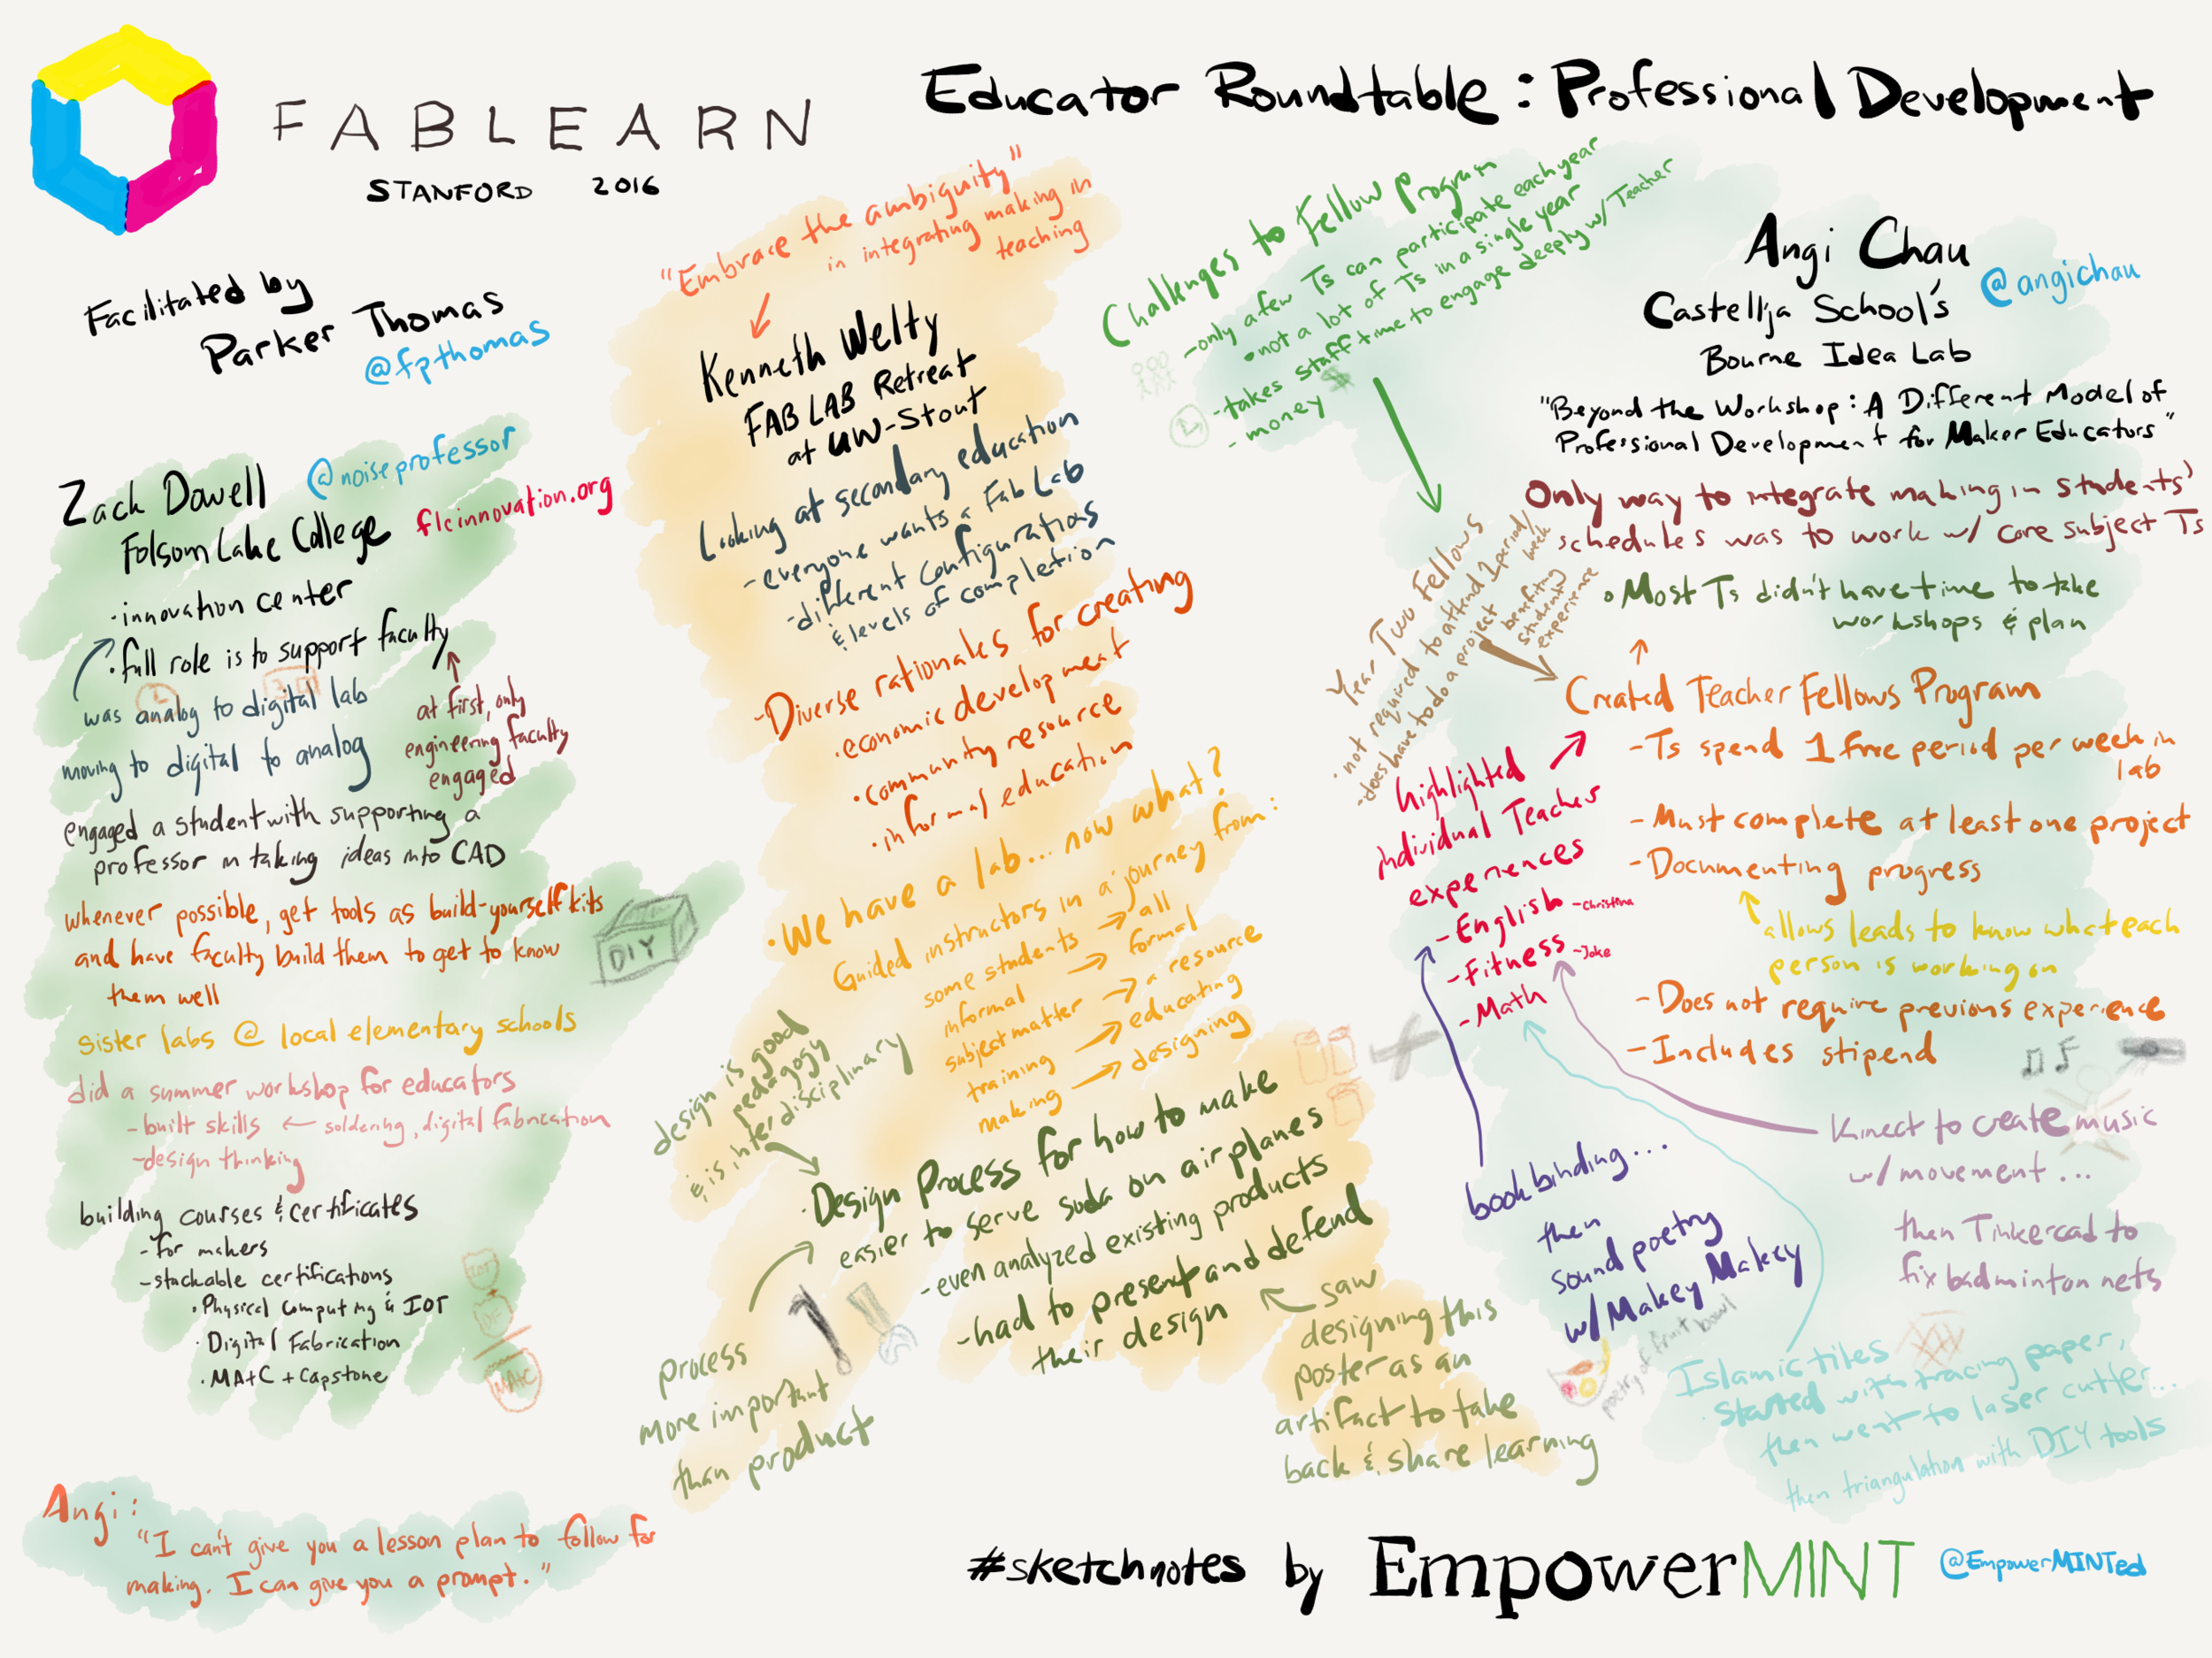 FABLEARN
STANFORD 2016
Educator Roundtable: Professional Development
Facilitated by
Parker Thomas
@fpthomas
Zack Dowell
@noiseprofessor
Folsom Lake College
flcinnovation.org
·innovation center
·full role is to support faculty
was analog to digital lab
moving to digital to analog
at first, only
engineering faculty
engaged
engaged a student with supporting a
professor in taking ideas into CAD
whenever possible, get tools as build-yourself kits
and have faculty build them to get to know
them well
DIY
sister labs @ local elementary schools
did a summer workshop for educators
-built skills ← soldering, digital fabrication
-design thinking
building courses & certificates
-for makers
-stackable certifications
·Physical Computing & IOT
·Digital Fabrication
·MAtC + Capstone
IOT
DF
MAtC
Angi:
"I can't give you a lesson plan to follow for
making. I can give you a prompt."
"Embrace the ambiguity"
in integrating making in
teaching
Kenneth Welty
FAB LAB Retreat
at UW-Stout
Looking at secondary education
-everyone wants a Fab Lab
-different configurations
& levels of completion
-Diverse rationales for creating
·economic development
·community resource
·informal education
·We have a lab... now what?
Guided instructors in a journey from:
some students → all
informal → formal
subject matter → a resource
training → educating
making → designing
design is good
pedagogy
& is interdisciplinary
·Design Process for how to make
easier to serve soda on airplanes
-even analyzed existing products
-had to present and defend
their design
process
more important
than product
saw
designing this
poster as an
artifact to take
back & share learning
Challenges to Fellow Program
-only a few Ts can participate each year
•not a lot of Ts in a single year
-takes staff time to engage deeply w/ Teacher
-money $
Angi Chau
@angichau
Castellija School's
Bourne Idea Lab
"Beyond the Workshop: A Different Model of
Professional Development for Maker Educators"
Only way to integrate making in students'
schedules was to work w/ core subject Ts
•Most Ts didn't have time to take
workshops & plan
Year Two Fellows
·not required to attend 1 period/
week
-does have to do a project
benefiting
students
experience
Created Teacher Fellows Program
-Ts spend 1 free period per week in
lab
-Must complete at least one project
-Documenting progress
allows leads to know what each
person is working on
-Does not require previous experience
-Includes stipend
highlighted
individual Teacher
experiences
-English -Christina
-Fitness -Joke
-Math
bookbinding...
then
sound poetry
w/ Makey Makey
poetry of fruit bowl
Kinect to create music
w/ movement...
then Tinkercad to
fix badminton nets
Islamic tiles
·started with tracing paper,
then went to laser cutter...
then triangulation with DIY tools
#sketchnotes by EmpowerMINT
@EmpowerMINTed